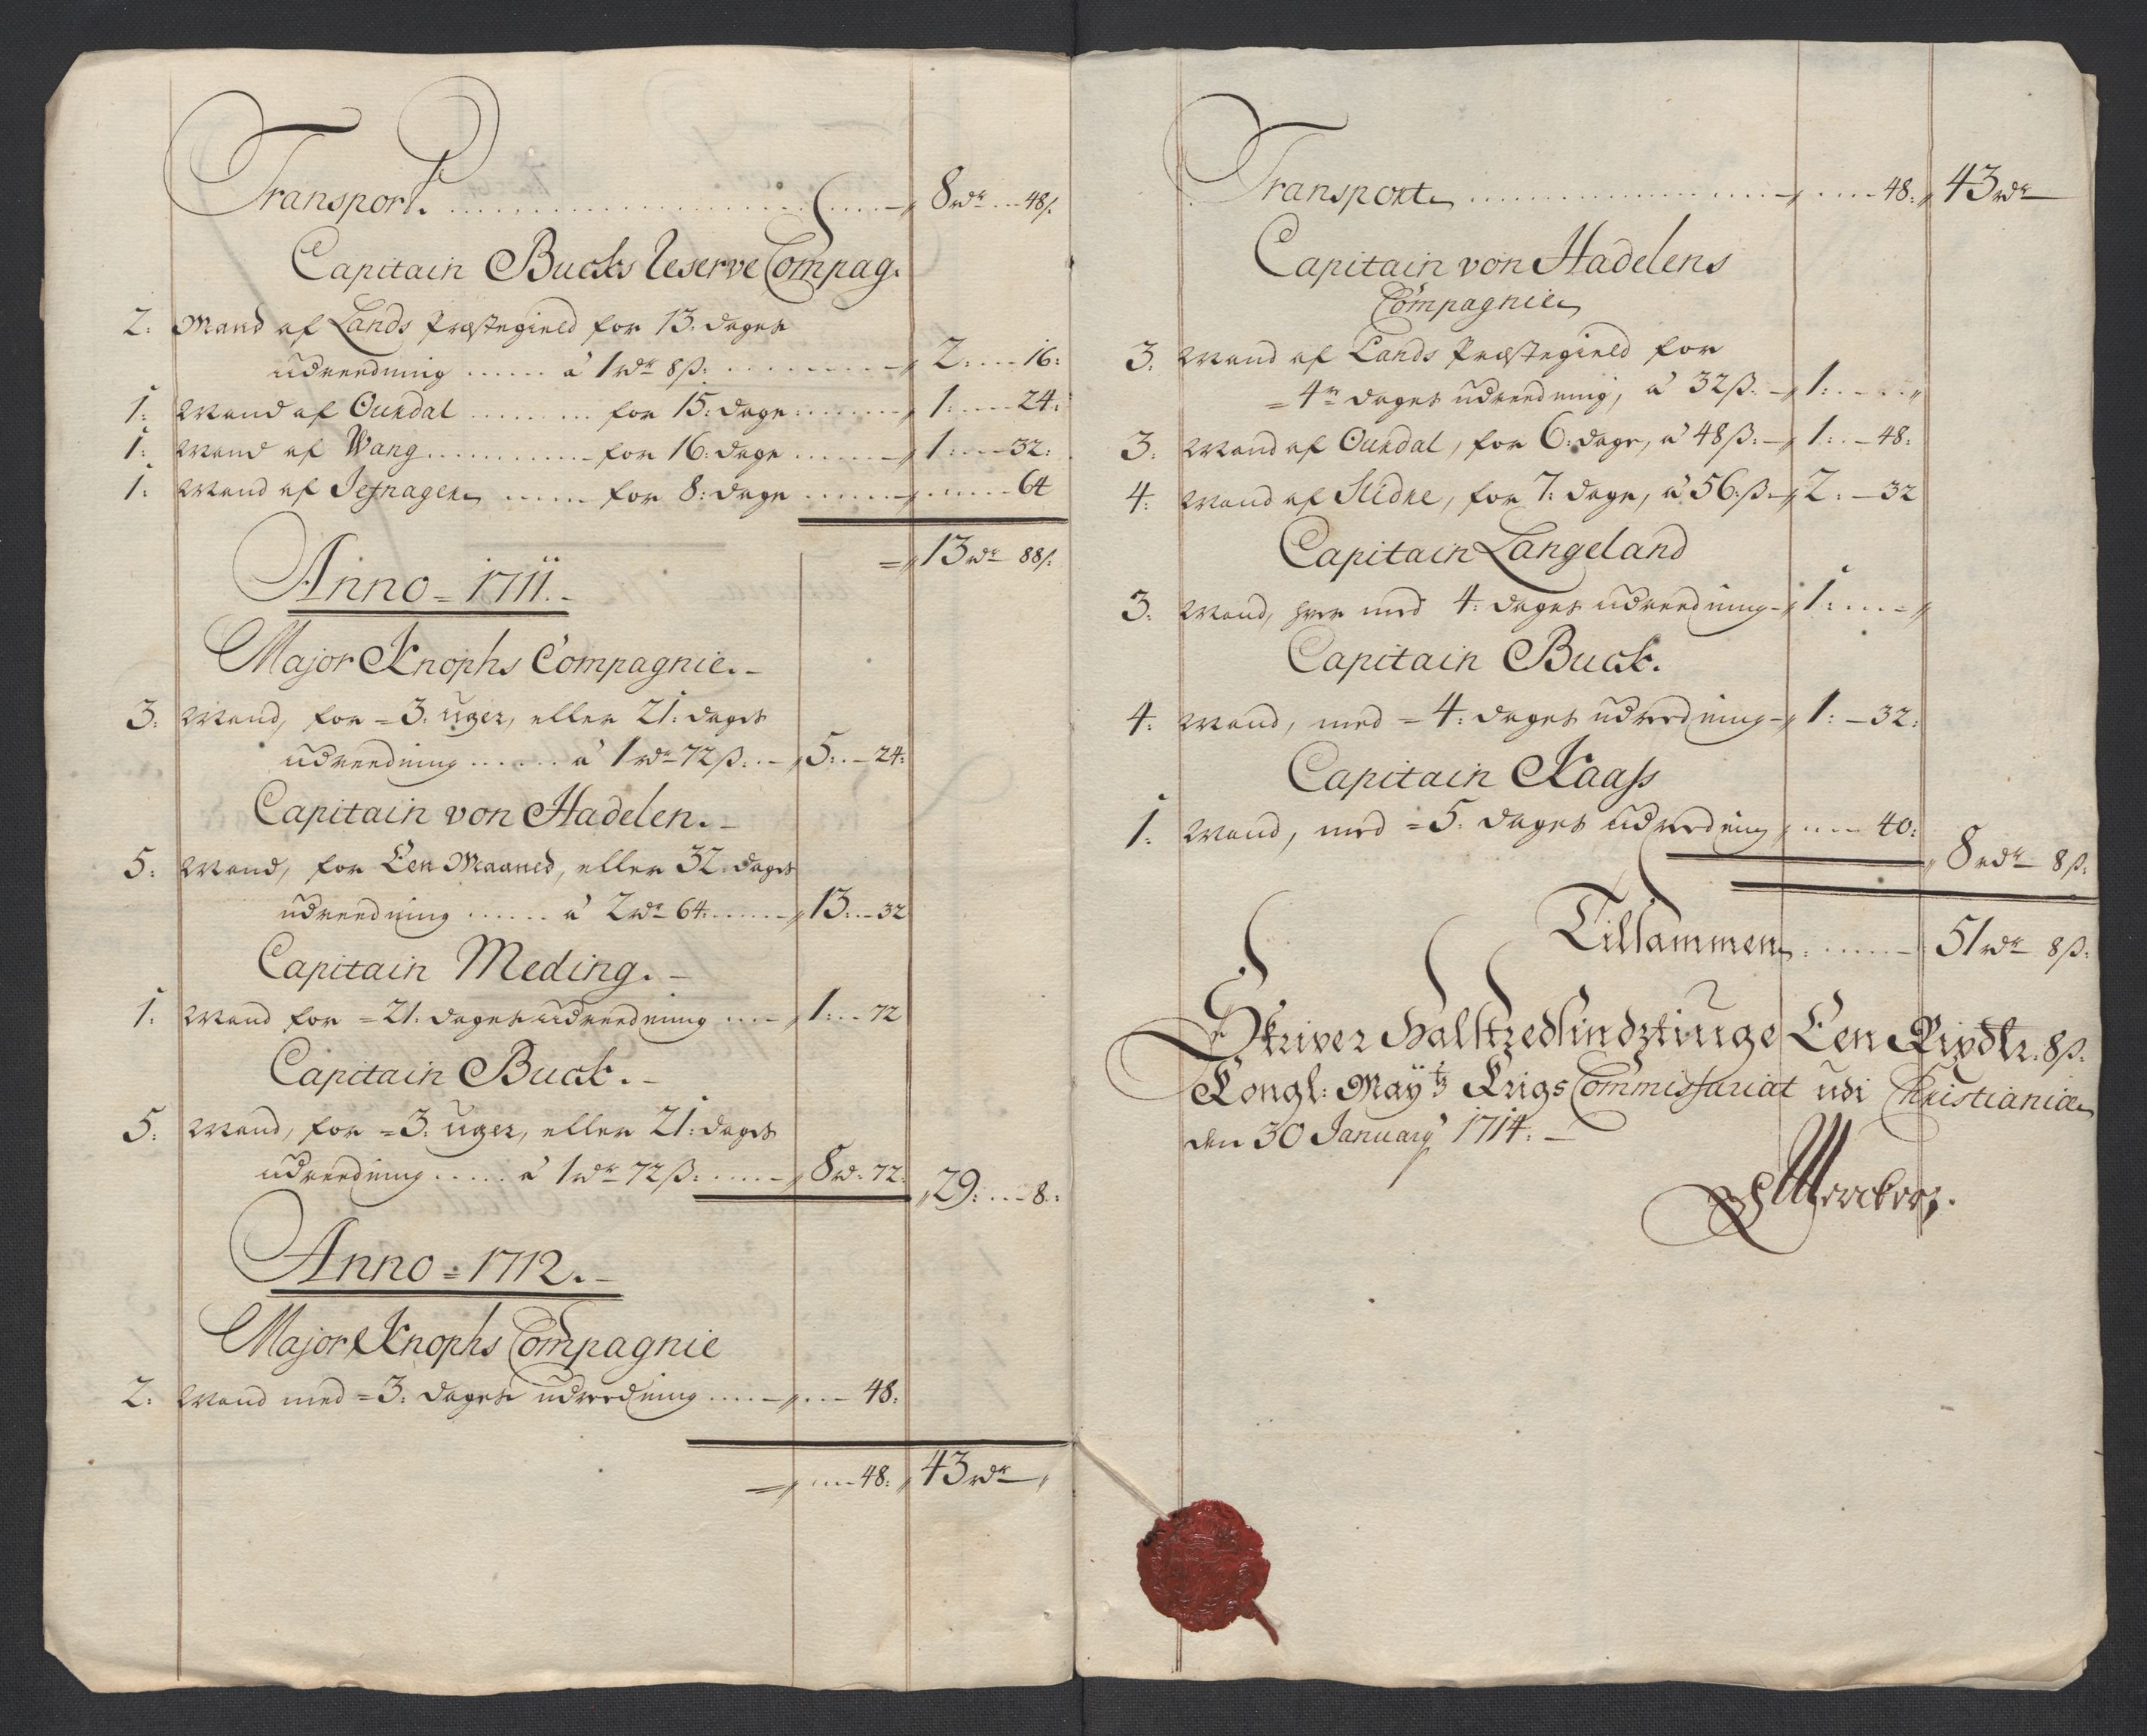 Transport. 8 rdr 48 ß.
Capitain Bucks Reserve Compag.
2: Mand af Lands Præstegield for 13. dages
udreedning à 1 rdr 8 ß: 2: 16:
1: Mand af Ourdal for 15: dage 1: 24:
1: Mand af Wang for 16: dage 1: 32:
1: Mand af Jefnager for 8: dage 64
13 rdr 88 ß.
Anno = 1711.
Major Knophs Compagnie.
3: Mand, for = 3: uger, eller 21: dages
udreedning à 1 rdr 72 ß: 5: 24:
Capitain von Hadelen.
5: Mand, for Een Maaned, eller 32: dages
udreedning à 2 rdr 64: 13: 32
Capitain Meding.
1: Mand for = 21: dages udreedning 1: 72
Capitain Buck.
5: Mand, for = 3: uger, eller 21: dages
udreedning à 1 rdr 72 ß: 8 rd: 72: 29: 8:
Anno = 1712.
Major Knophs Compagnie
2: Mand med = 3: dages udreedning 48:
48: 43 rdr
Transport 48: 43 rdr
Capitain von Hadelens
Compagnie
3: Mand af Lands Præstegield for
= 4re dages udreedning, à 32 ß. 1:
3: Mand af Ourdal, for 6: dage, à 48 ß: 1: 48:
4: Mand af Slidre, for 7: dage, à 56: ß 2: 32
Capitain Langeland
3: Mand, hver med 4: dages udreedning 1:
Capitain Buck.
4: Mand, med = 4: dages udreedning 1: 32:
Capitain Kaass
1: Mand, med = 5: dages udreedning 40:
8 rdr 8 ß:
Tilsammen 51 rdr 8 ß:
Skriver Halftredsindztiuge Een Rixdlr. 8 ß.
Kongl: Mayts Krigs Commissariat udi Christiania
den 30 January 1714.